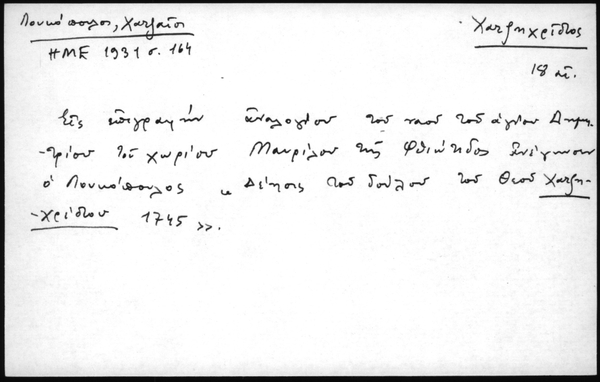 Λουκόπουλος, Χατζαῖοι
ΗΜΕ 1931 σ. 164
Χατζηχρίστος
18 αἰ.
Εἰς ἐπιγραφήν ἀναλογίου τοῦ ναοῦ τοῦ ἁγίου Δημη-
-τρίου τοῦ χωρίου Μαυρίλου τῆς Φθιώτιδος ἀνέγνωσεν
ὁ Λουκόπουλος « Δέησις τοῦ δούλου τοῦ Θεοῦ Χατζη-
-χρίστου 1745 ».